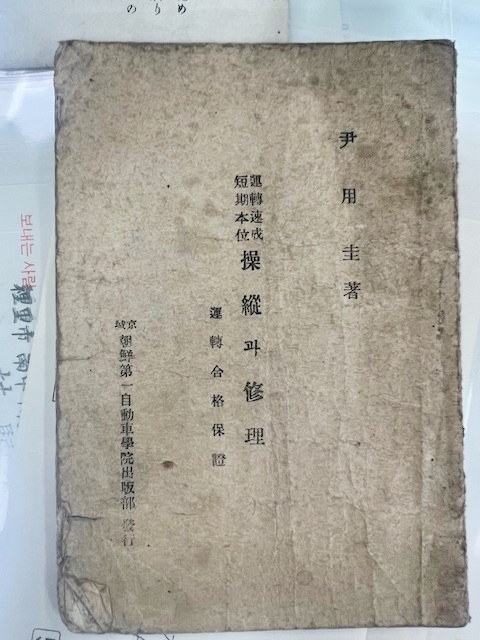 尹用圭著
運轉速成
短期本位
操縱과修理
運轉合格保證
京城
朝鮮第一自動車學院出版部發行
보내는 사람
め
り
の